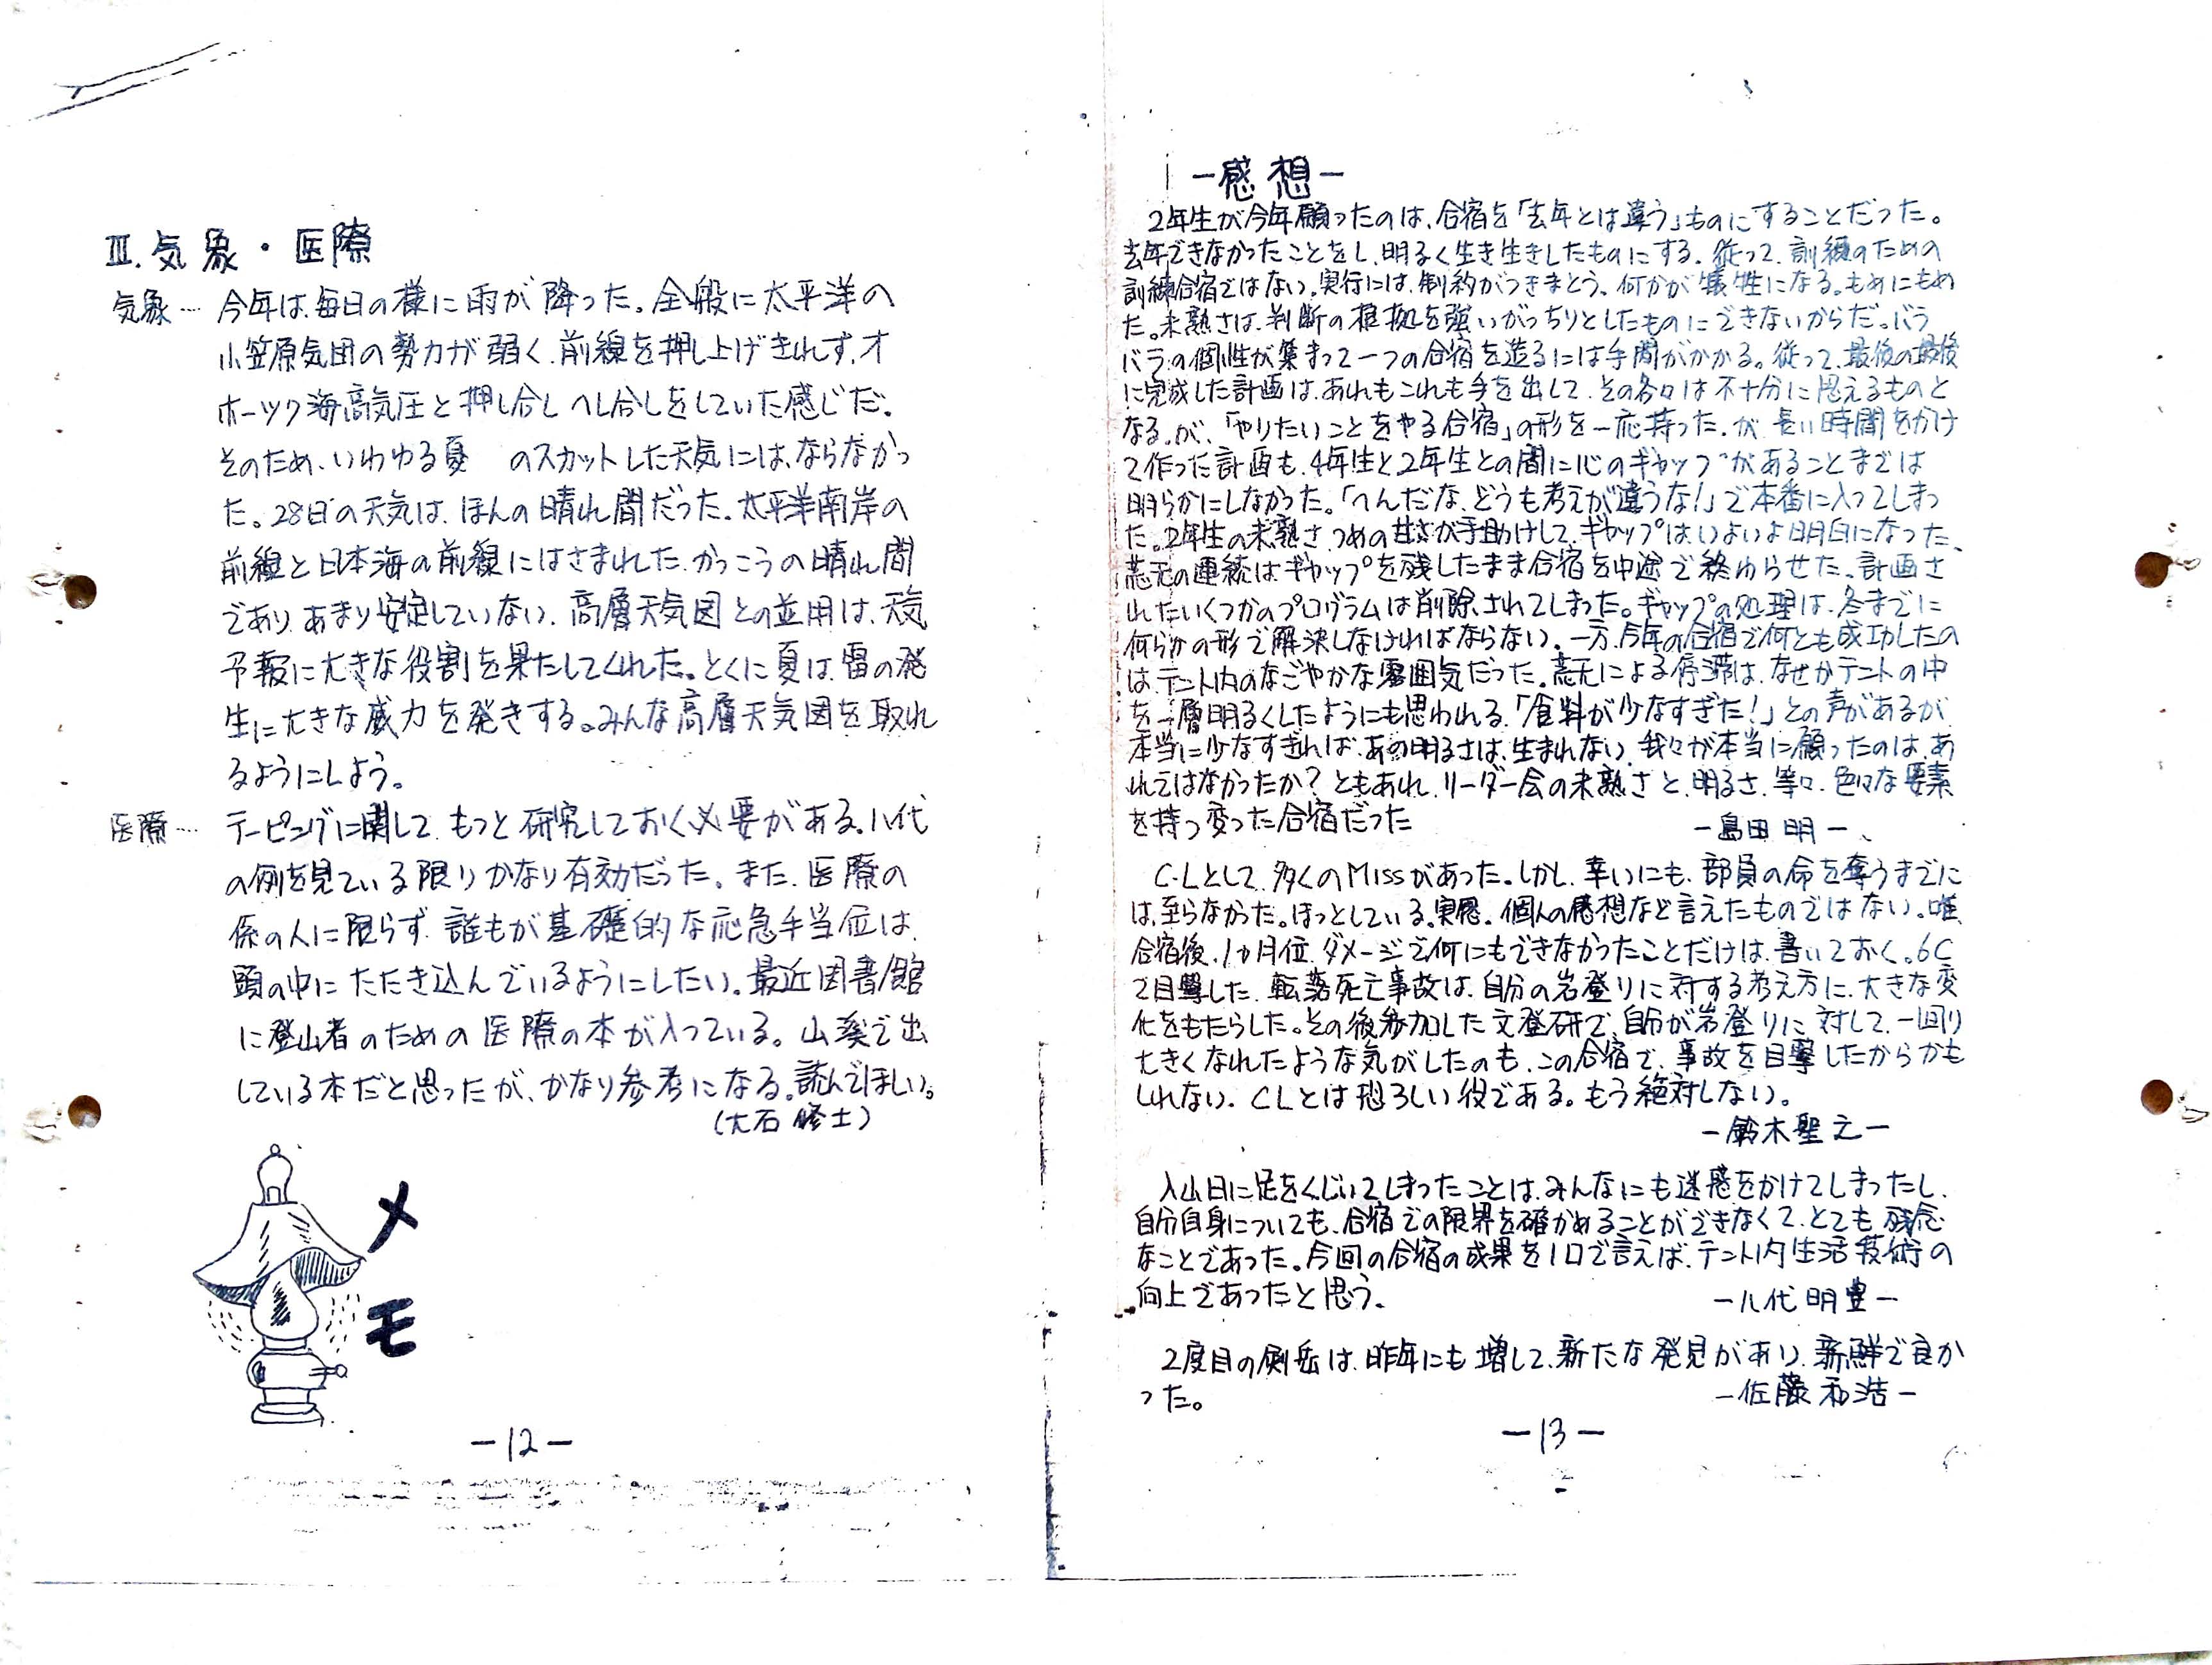 Ⅲ. 気象・医療
気象… 今年は、毎日の様に雨が降った。全般に太平洋の
小笠原気団の勢力が弱く、前線を押し上げきれず、オ
ホーツク海高気圧と押し合しへし合しをしていた感じだ。
そのため、いわゆる夏 のスカットした天気には、ならなかっ
た。28日の天気は、ほんの晴れ間だった。太平洋南岸の
前線と日本海の前線にはさまれた、かっこうの晴れ間
であり、あまり安定していない。高層天気図との並用は、天気
予報に大きな役割を果たしてくれた。とくに夏は、雷の発
生に大きな威力を発きする。みんな高層天気図を取れ
るようにしよう。
医療… テーピングに関して、もっと研究しておく必要がある。八代
の例を見ている限りかなり有効だった。また、医療の
係の人に限らず、誰もが基礎的な応急手当位は、
頭の中にたたき込んでいるようにしたい。最近図書館
に登山者のための医療の本が入っている。山溪で出
している本だと思ったが、かなり参考になる。読んでほしい。
(大石 修士)
メ
モ
－12－
－感想－
2年生が今年願ったのは、合宿を「去年とは違う」ものにすることだった。
去年できなかったことをし、明るく生き生きしたものにする。従って、訓練のための
訓練合宿ではない。実行には、制約がつきまとう。何かが犠牲になる。もめにもめ
た。未熟さは、判断の根拠を強いがっちりとしたものにできないからだ。バラ
バラの個性が集まって一つの合宿を造るには手間がかかる。従って、最後の最後
に完成した計画は、あれもこれも手を出して、その各々は不十分に思えるものと
なる。が、「やりたいことをやる合宿」の形を一応持った。が、長い時間をかけ
て作った計画も、4年生と2年生との間に心のギャップがあることまでは
明らかにしなかった。「へんだな、どうも考えが違うな!」で本番に入ってしまっ
た。2年生の未熟さ、つめの甘さが手助けして、ギャップは、いよいよ明白になった。
荒天の連続は、ギャップを残したまま合宿を中途で終わらせた。計画さ
れたいくつかのプログラムは削除されてしまった。ギャップの処理は、冬までに
何らかの形で解決しなければならない。一方、今年の合宿で何とも成功したの
は、テント内のなごやかな雰囲気だった。荒天による停滞は、なぜかテントの中
を一層明るくしたようにも思われる。「食料が少なすぎた!」との声があるが
本当に少なすぎれば、あの明るさは、生まれない。我々が本当に願ったのは、あ
れではなかったか? ともあれ、リーダー会の未熟さと、明るさ、等々、色々な要素
を持つ変った合宿だった
－島田 明－
C.Lとして、多くのMissがあった。しかし、幸いにも、部員の命を奪うまでに
は、至らなかった。ほっとしている。実感。個人の感想など言えたものではない。唯、
合宿後、1ヵ月位、ダメージで何にもできなかったことだけは、書いておく。6C
で目撃した、転落死亡事故は、自分の岩登りに対する考え方に、大きな変
化をもたらした。その後参加した文登研で、自分が岩登りに対して、一回り
大きくなれたような気がしたのも、この合宿で、事故を目撃したからかも
しれない。CLとは恐ろしい役である。もう絶対しない。
－鈴木聖之－
入山日に足をくじいてしまったことは、みんなにも迷惑をかけてしまったし、
自分自身についても、合宿での限界を確かめることができなくて、とても残念
なことであった。今回の合宿の成果を1口で言えば、テント内生活技術の
向上であったと思う。
－八代明豊－
2度目の剣岳は、昨年にも増して、新たな発見があり、新鮮で良か
った。
－佐藤和浩－
－13－